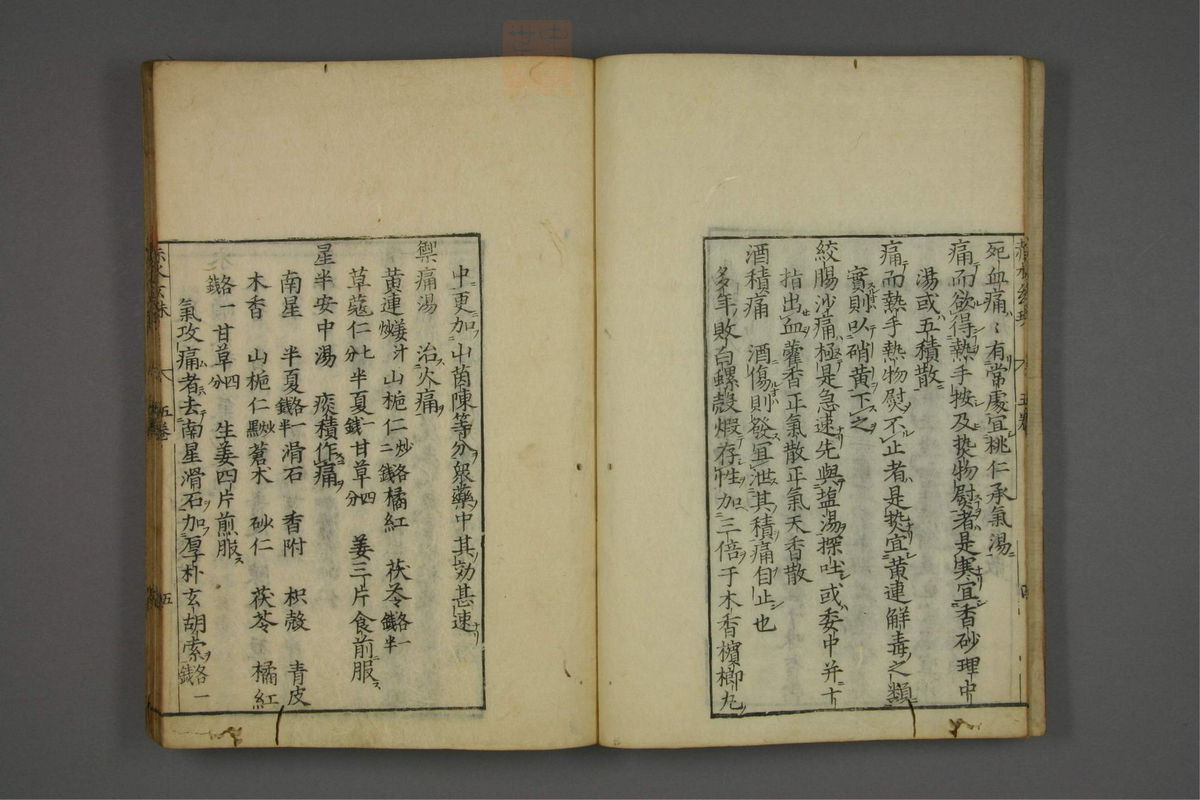 死血痛〻有常處宜桃仁承氣湯
痛而欲得熱手按及熱物熨者是寒宜香砂理中
湯或五積散
痛而熱手熱物熨不止者是熱宜黃連解毒之類
實則以硝黃下之
絞腸沙痛極是急速先與塩湯探吐或委中并十
指出血藿香正氣散正氣天香散
酒積痛 酒傷則發宜泄其積痛自止也
多年敗白螺殼煆存性加三倍于木香檳榔丸
中更加山茵陳等分眾藥中其効甚速
禦痛湯 治火痛
黃連炒姜汁 山梔仁炒各二錢 橘紅 茯苓各一錢半
草蔻仁七分 半夏一錢 甘草四分 姜三片食前服
星半安中湯 痰積作痛
南星 半夏各一錢半 滑石 香附 枳殼 青皮
木香 山梔仁炒黑 蒼朮 砂仁 茯苓 橘紅
各一錢 甘草四分 生姜四片煎服
氣攻痛者去南星滑石加厚朴玄胡索各一錢
五卷
五